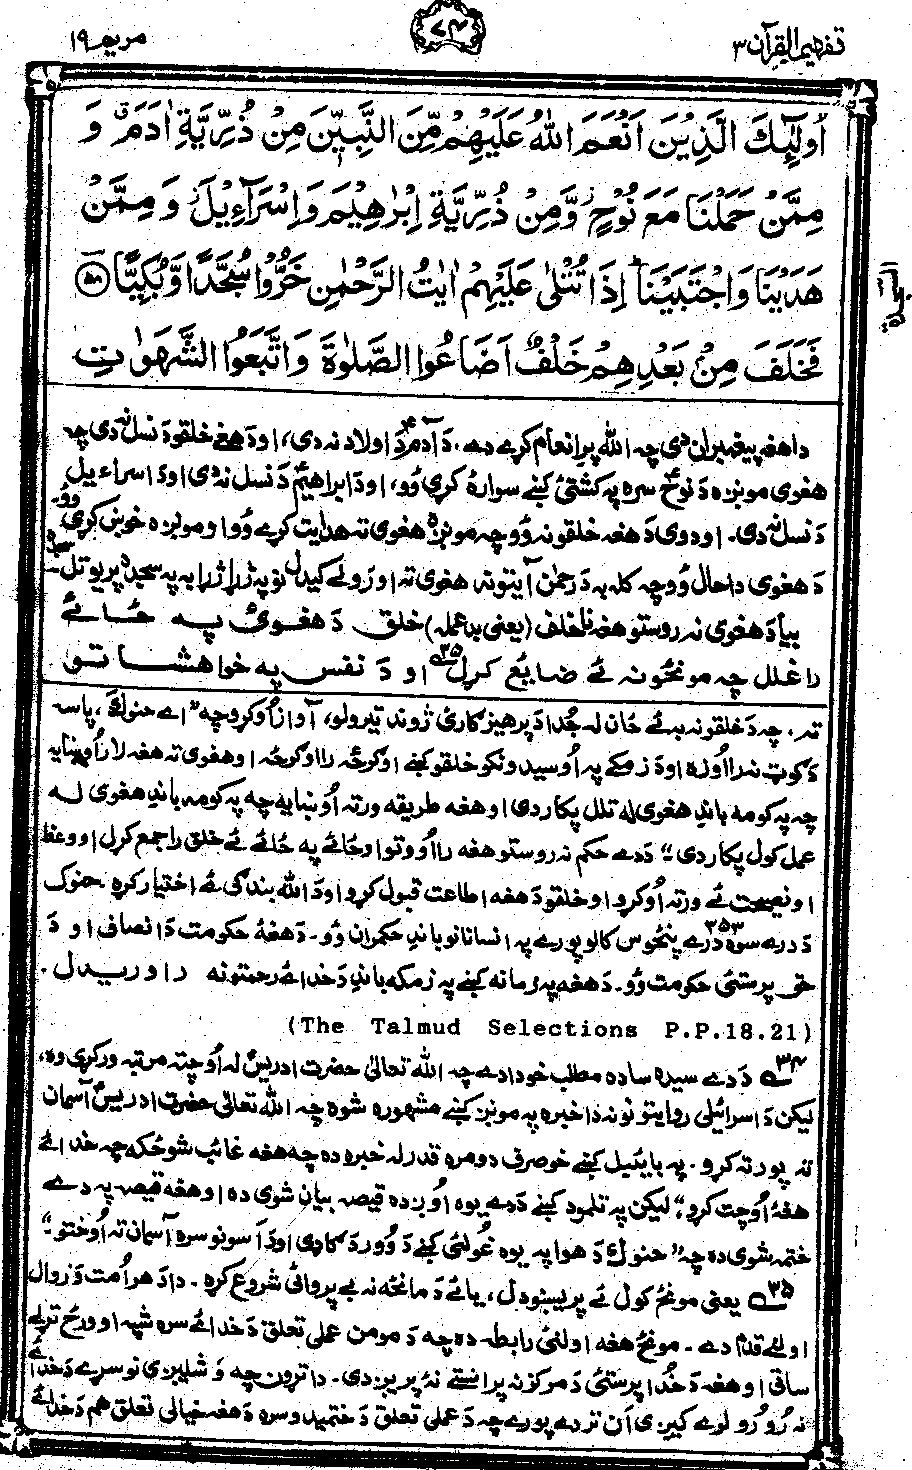 تفهیم القرآن ۳
۷۴
مریم ۱۹
اُولٰٓئِكَ الَّذِيْنَ اَنْعَمَ اللّٰهُ عَلَيْهِمْ مِّنَ النَّبِيّٖنَ مِنْ ذُرِّيَّةِ اٰدَمَ ۗ وَ
مِمَّنْ حَمَلْنَا مَعَ نُوْحٍ ۖ وَّمِنْ ذُرِّيَّةِ اِبْرٰهِيْمَ وَاِسْرَآءِيْلَ ۖ وَمِمَّنْ
هَدَيْنَا وَاجْتَبَيْنَا ۗ اِذَا تُتْلٰى عَلَيْهِمْ اٰيٰتُ الرَّحْمٰنِ خَرُّوْا سُجَّدًا وَّبُكِيًّا ۝۵۸
فَخَلَفَ مِنْۢ بَعْدِهِمْ خَلْفٌ اَضَاعُوا الصَّلٰوةَ وَاتَّبَعُوا الشَّهَوٰتِ
داهغه پیغمبران دی چه الله پرانعام کړے دے. دَ آدمؑ دَ اولاد نه دی، او دَ هغے خلقو دَ نسل نه دی چه
هغوی مونږه دَ نوحؑ سره په کشتئ کښے سوارهٔ کړی وُو، او دَ ابراهیمؑ دَ نسل نه دی او دَ اسراءییل
دَ نسل نه دی. او دوی دَ هغه خلقو نه وُو چه مونږه هغوی ته هدایت کړے وُو او مونږه خوښ کړی وُو
دَ هغوی دا حال وُو چه کله به دَ رحمٰن آیتونه هغوی ته اورولے کیدل نو په ژړا ژړا به په سجده پریوتل
بیا دَ هغوی نه روستو هغه ناخلف (یعنی بد عمله) خلق دَ هغوی په ځائے
راغلل چه مونځونه ئے ضایع کړل۳۵ او دَ نفس په خواهشاتو
ته، چه دَ خلقو نه بے ځان له جُدا دَ پرهیزګارئ ژوند تیرولو، آواز اُوکړو چه "اے حنوکؑ، پاسه
دَ ګوټ نه را اُوزه او دَ زمکے په اُوسیدونکو خلقو کښے اوګرځه را اوګرځه او هغوی ته هغه لار اُوښایه
چه په کومه باندِ هغوی له تلل پکار دی او هغه طریقه ورته اُوښایه چه په کومه باندِ هغوی له
عمل کول پکار دی" دَ دے حکم نه روستو هغه را اُووتو او ځائے په ځائے ئے خلق راجمع کړل او وعظ
او نصیحت ئے ورته اُوکړو او خلقو دَ هغه اطاعت قبول کړو او دَ الله بندګی ئے اختیار کړه. حنوک
دَ درے سوه درے پنځوس ۳۵۳ کالو پورے په انسانانو باندِ حکمران وُو۔ دَ هغهٔ حکومت دَ انصاف او دَ
حق پرستئ حکومت وُو۔ دَ هغه په زمانه کښے په زمکه باندِ دَ خدائے رحمتونه را اوریدل.
(The Talmud Selections P.P.18.21)
۳۴ دَ دے سیده ساده مطلب خو دا دے چه الله تعالیٰ حضرت ادریسؑ له اُوچته مرتبه ورکړی وه،
لیکن دَ اسرائیلی روایتونو نه دا خبره په مونږ کښے مشهوره شوه چه الله تعالیٰ حضرت ادریسؑ آسمان
ته پورته کړو. په بائیبل کښے خو صرف دومره قدر له خبره ده چه هغه غائب شو ځکه چه خدائے
هغهٔ اُوچت کړو" لیکن په تلمود کښے دَ دے یوه اُوږده قیصه بیان شوی ده او هغه قیصه په دے
ختمه شوی ده چه "حنوکؑ دَ هوا په یوه غولئ کښے دَ وُور دَ ګاډی او دَ اَسونو سره آسمان ته اُوختو"
۳۵ یعنی مونځ کول ئے پریښودل، یائے دَ مانځه نه بے پروائی شروع کړه. دا دَ هر اُمت دَ زوال
اولنے قدم دے۔ مونځ هغه اولنئ رابطه ده چه دَ مومن عملی تعلق دَ خدائے سره شپه او ورځ تړلے
ساتی او هغه دَ خُدا پرستئ دَ مرکز نه پرانستے نهٔ پریږدی۔ دا تړون چه وَ شلیږی نو سړے دَ خدائے
نه زُو رُو لرے کیږی اَن تر دے پورے چه دَ عملی تعلق دَ ختمیدو سره دَ هغه خیالی تعلق هم دَ خدائے